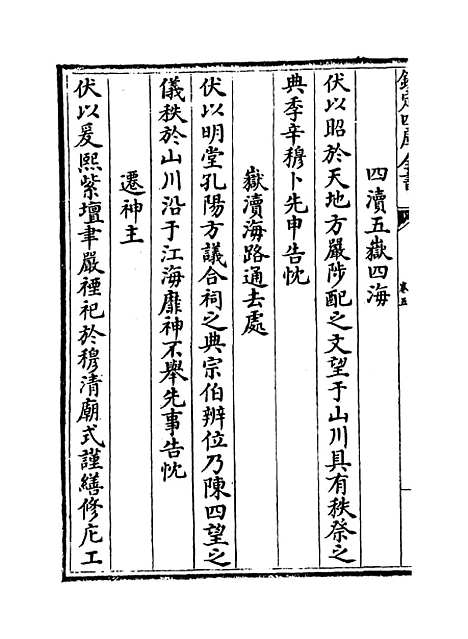 欽定四庫全書
卷五
四瀆五嶽四海
伏以昭於天地方嚴陟配之文望于山川具有秩祭之
典季辛穆卜先申告忱
嶽瀆海路通去處
伏以明堂孔陽方議合祠之典宗伯辨位乃陳四望之
儀秩於山川沿于江海靡神不舉先事告忱
遷神主
伏以爰熙紫壇聿嚴禋祀於穆清廟式謹繕修庀工